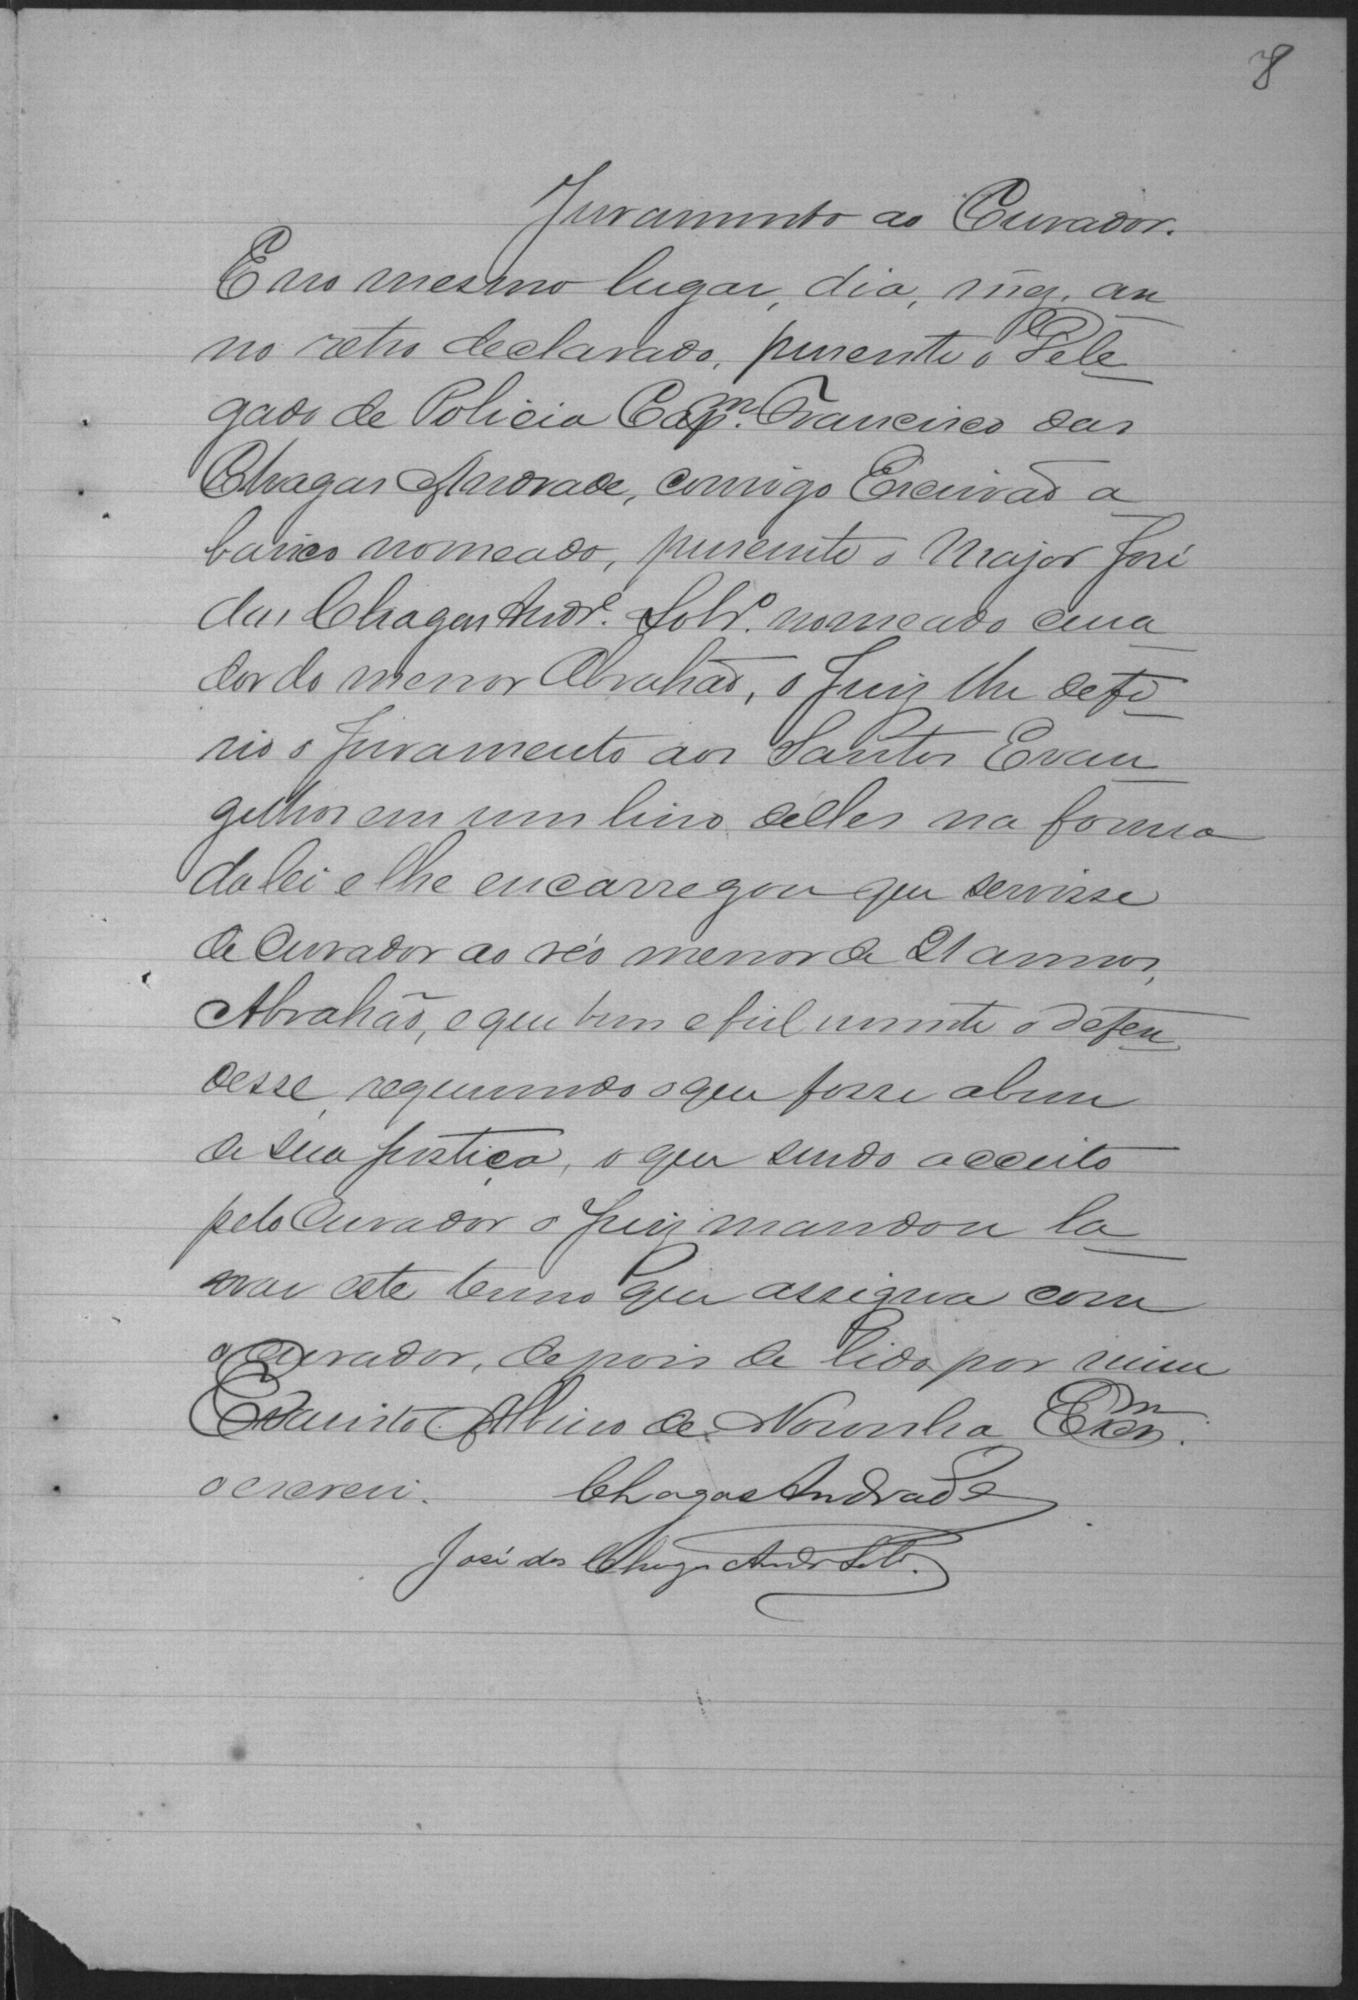 8
Juramento ao Curador.
E no mesmo lugar, dia, mez, an
no retro declarado, presente o Dele
gado de Policia Capm. Francisco das
Chagas Andrade, comigo Escrivão a
baixo nomeado, presente o Major José
das Chagas Andre. Sobro. nomeado cura
dor do menor Abrahão, o Juiz lhe defe
rio o juramento aos Santos Evan
gelhos em um livro delles na forma
da lei e lhe encarregou que servisse
de Curador ao réo menor de 21 annos,
Abrahão, e que bem e fielmente o defen
desse, requerendo o que fosse a bem
de sua justiça, o que sendo acceito
pelo Curador o Juiz mandou la
vrar este termo que assigna com
o Curador, depois de lido por mim
Evaristo Albino de Noronha Escm.
o escrevi. Chagas Andrade
José das Chagas Andr Sobr.